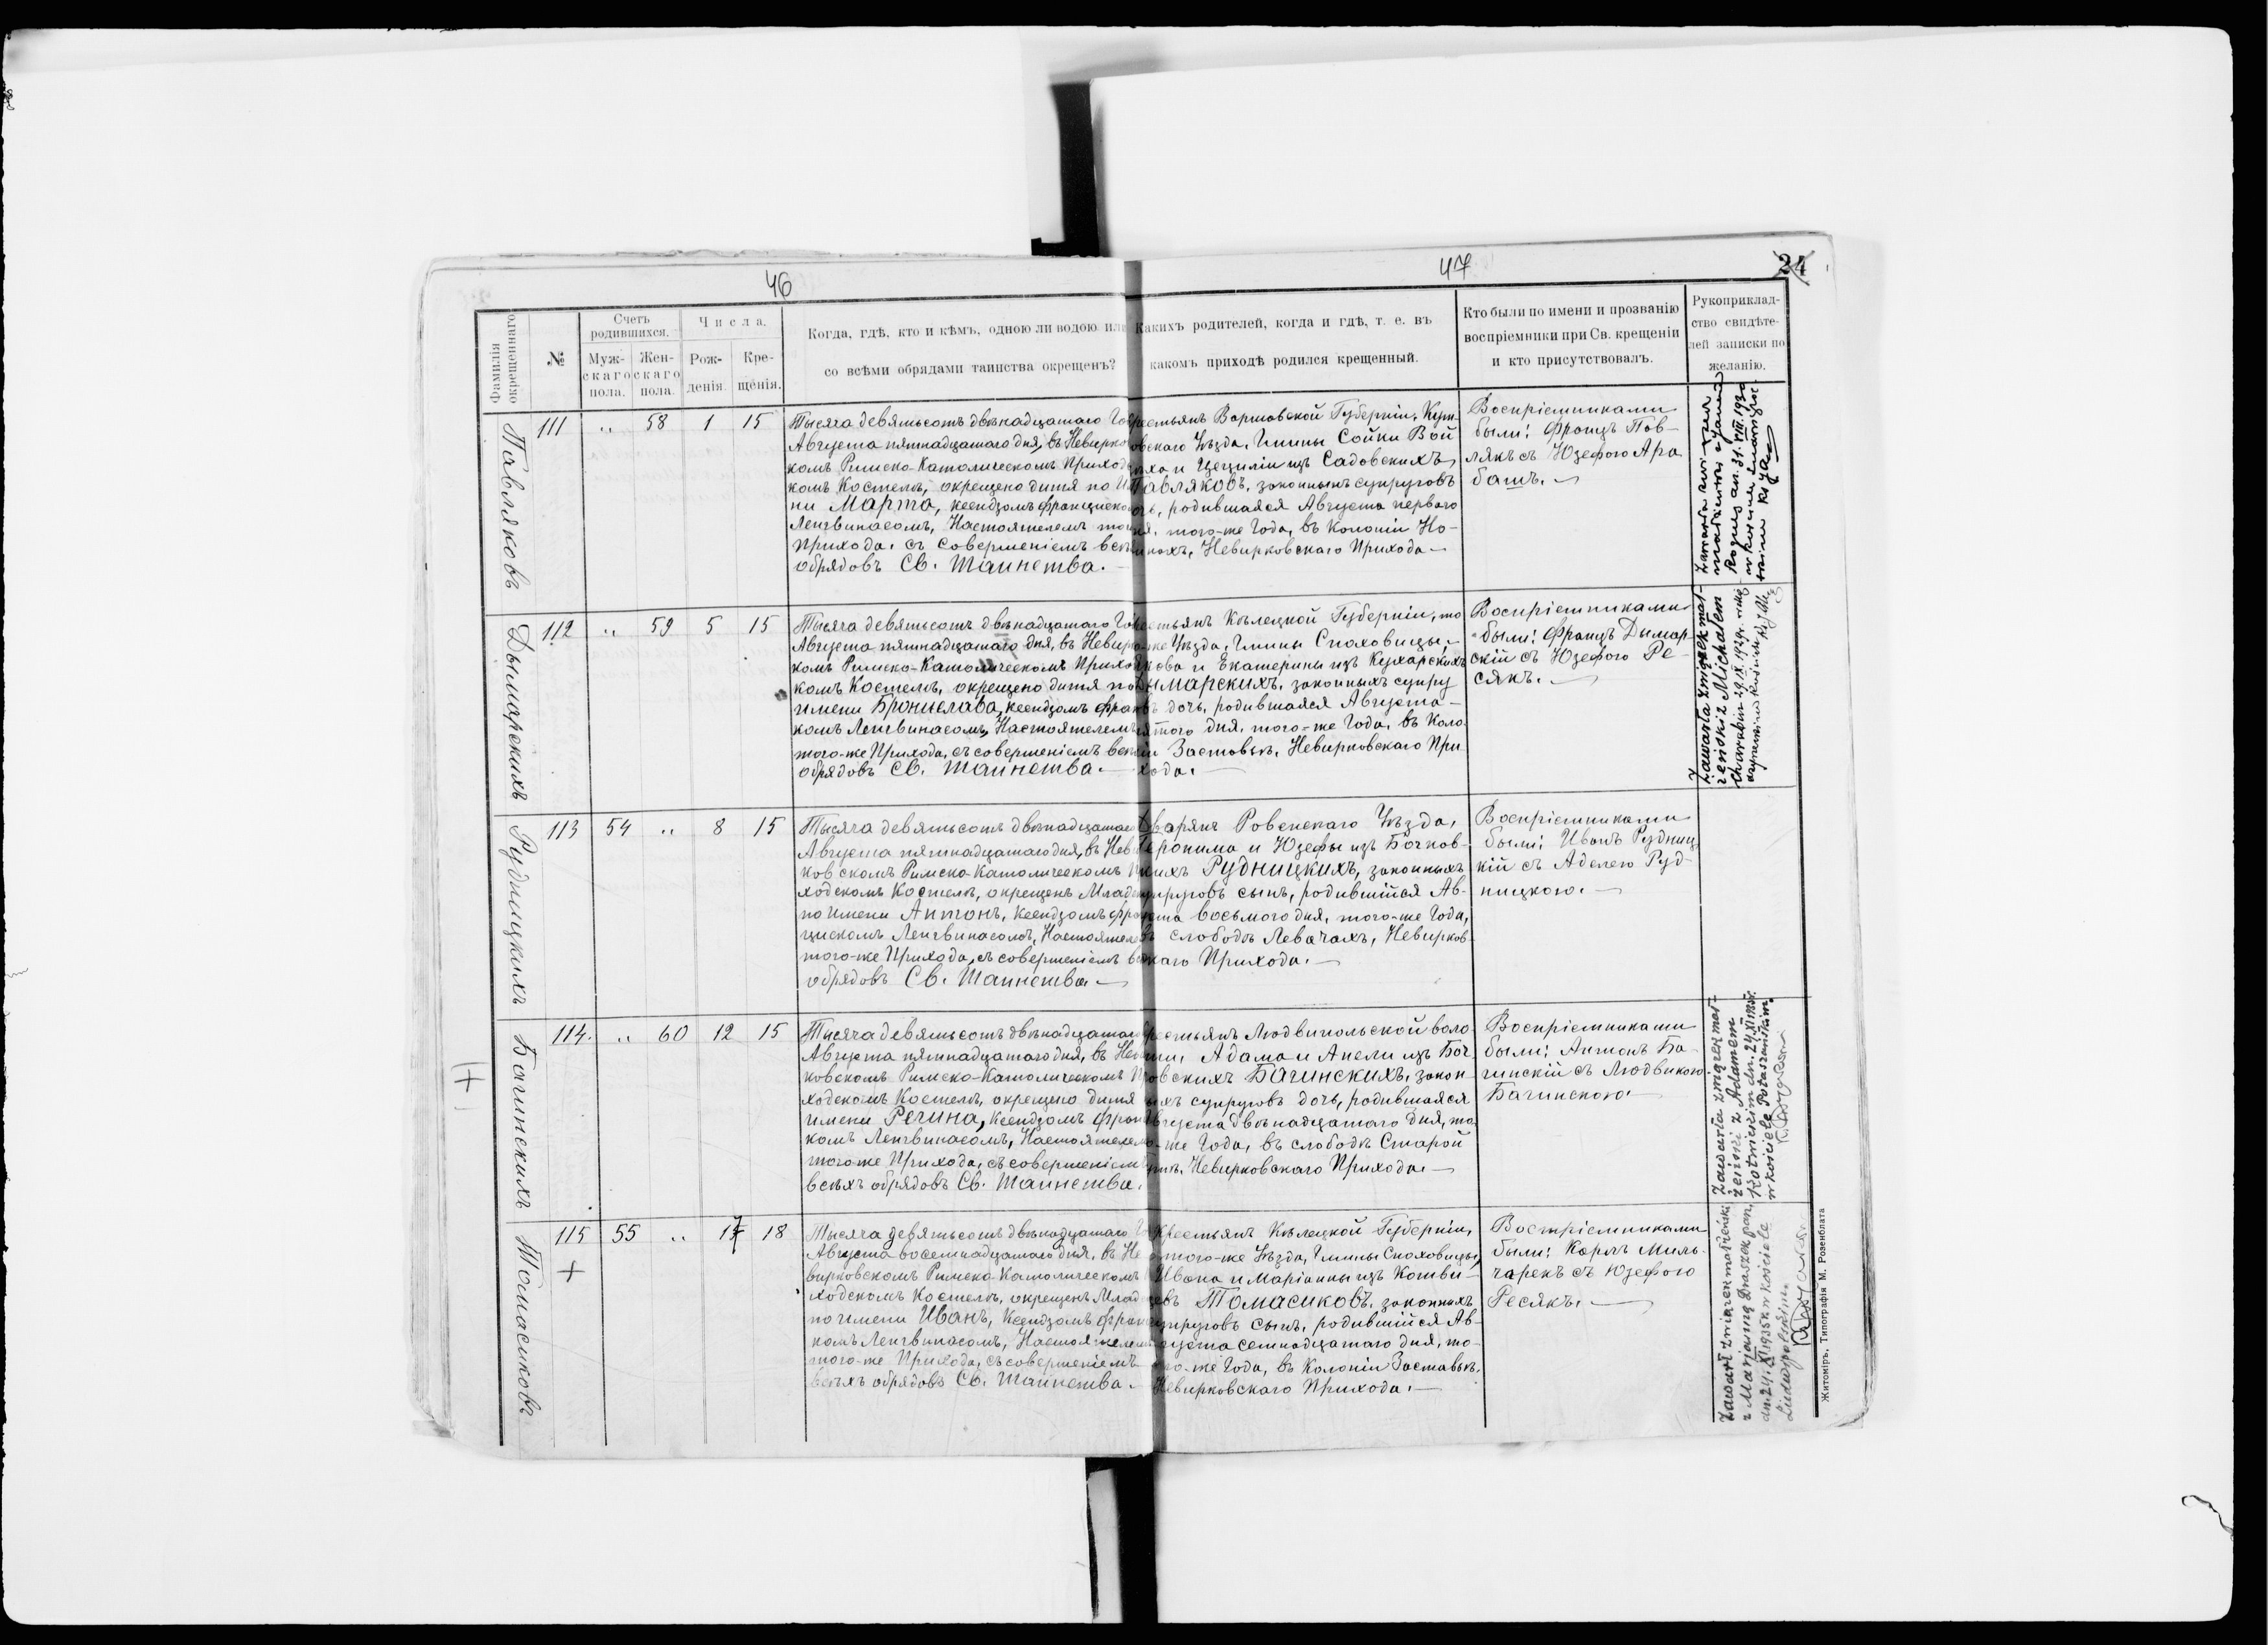 46
47
24
Фамилія окрещеннаго.
№
Счетъ родившихся.
Мужскаго пола.
Женскаго пола.
Числа.
Рожденія.
Крещенія.
Когда, гдѣ, кто и кѣмъ, одною ли водою или
со всѣми обрядами таинства окрещенъ?
Какихъ родителей, когда и гдѣ, т. е. въ
какомъ приходѣ родился крещенный.
Кто были по имени и прозванію
воспріемники при Св. крещеніи
и кто присутствовалъ.
Рукоприклад-
ство свидѣте-
лей записки по
желанію.
Павляковъ
111 " 58 1 15
Тысяча девятьсотъ двѣнадцатаго Го
Августа пятнадцатаго дня, въ Невирко
комъ Римско-Католическомъ Приход
комъ Костелѣ, окрещено дитя по И
ни Марта, ксендзомъ Франциско
Ленгвинасомъ, Настоятелемъ то
Прихода, съ совершеніемъ всѣ
обрядовъ Св. Таинства.
рестьянъ Варшавской Губерніи, Кут
овскаго Уѣзда, Гмины Сойки Вой
ха и Цециліи изъ Садовскихъ
Павляковъ, законныхъ супруговъ
очь, родившаяся Августа перваго
ня, того-же Года, въ Колоніи Но-
инахъ, Невирковскаго Прихода —
Воспріемниками
были: Францъ Пав-
лякъ съ Юзефою Ара
башъ. —
Дымарскихъ
112 " 59 5 15
Тысяча девятьсотъ двѣнадцатаго Го
Августа пятнадцатаго дня, въ Невирко
комъ Римско-Католическомъ Приход
комъ Костелѣ, окрещено дитя по
имени Брониславa, ксендзомъ Фран
комъ Ленгвинасомъ, Настоятелемъ
того-же Прихода, съ совершеніемъ всѣ
обрядовъ Св. Таинства. —
рестьянъ Кѣлецкой Губерніи, то
же Уѣзда, Гмины Снохoвицы,
кова и Екатерины изъ Кухарскихъ
Дымарскихъ, законныхъ супру
въ дочь, родившаяся Августа —
пятого дня, того-же Года, въ Коло
іи Заставье, Невирковскаго При
хода. —
Воспріемниками
были: Францъ Дымар
скій съ Юзефою Ре-
сякъ. —
Zawarła związek mał-
żeński z Michałem
Рудницкихъ
113 54 " 8 15
Тысяча девятьсотъ двѣнадцатаго
Августа пятнадцатаго дня, въ Неви
ковскомъ Римско-Католическомъ П
ходскомъ Костелѣ, окрещенъ Младен
по имени Антонъ, ксендзомъ Фран
цискомъ Ленгвинасомъ, Настоятеле
того-же Прихода, съ совершеніемъ в
обрядовъ Св. Таинства. —
Дварянъ Ровенскаго Уѣзда,
Іеронима и Юзефы изъ Бочков-
кихъ Рудницкихъ, законныхъ
упруговъ сынъ, родившійся Ав-
уста восьмого дня, того-же Года,
въ слободѣ Левачахъ, Невирков-
каго Прихода. —
Воспріемниками
были: Иванъ Рудниц
кій съ Аделею Руд-
ницкою. —
Багинскихъ
114. " 60 12 15
Тысяча девятьсотъ двѣнадцатаго
Августа пятнадцатаго дня, въ Нев
ковскомъ Римско-Католическомъ П
ходскомъ Костелѣ, окрещено дитя
имени Регина, ксендзомъ Фран
комъ Ленгвинасомъ, Настоятелем
того-же Прихода, съ совершеніем
всѣхъ обрядовъ Св. Таинства.
рестьянъ Людвипольской воло
ти, Адама и Анели изъ Боч
овскихъ Багинскихъ, закон
ыхъ супруговъ дочь, родившаяся
Августа двѣнадцатаго дня, то
о-же Года, въ слободѣ Старой
Гутѣ, Невирковскаго Прихода. —
Воспріемниками
были: Антонъ Ба-
гинскій съ Людвикою
Багинскою —
Zawarła związek mał-
żeński z Adamem
Томасиковъ
115 55 " 17 18
Тысяча девятьсотъ двѣнадцатаго Го
Августа восемнадцатаго дня, въ Не
вирковскомъ Римско-Католическомъ
ходскомъ Костелѣ, окрещенъ Млад
по имени Иванъ, Ксендзомъ Фран
комъ Ленгвинасомъ, Настоятелем
того-же Прихода, съ совершеніемъ
всѣхъ обрядовъ Св. Таинства. —
Крестьянъ Кѣлецкой Губерніи,
того-же Уѣзда, Гмины Снохoвицы,
Ивана и Маріанны изъ Котви-
цевъ Томасиковъ, законныхъ
упруговъ сынъ, родившійся Ав-
густа семнадцатаго дня, то-
го-же Года, въ Колоніи Заставье,
Невирковскаго Прихода. —
Воспріемниками
были: Карлъ Миль-
чарекъ съ Юзефою
Ресякъ. —
Zawarł związek małżeński
z Marianną Draszek
dn. 24. XI 1935 r. w kościele
Ludwipolskim.
Житоміръ, Типографія М. Розенблата